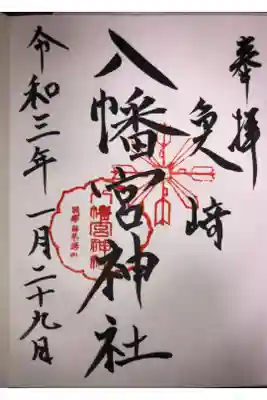 奉拝
魚崎
八幡宮神社
八幡宮神社
令和三年 一月二十九日